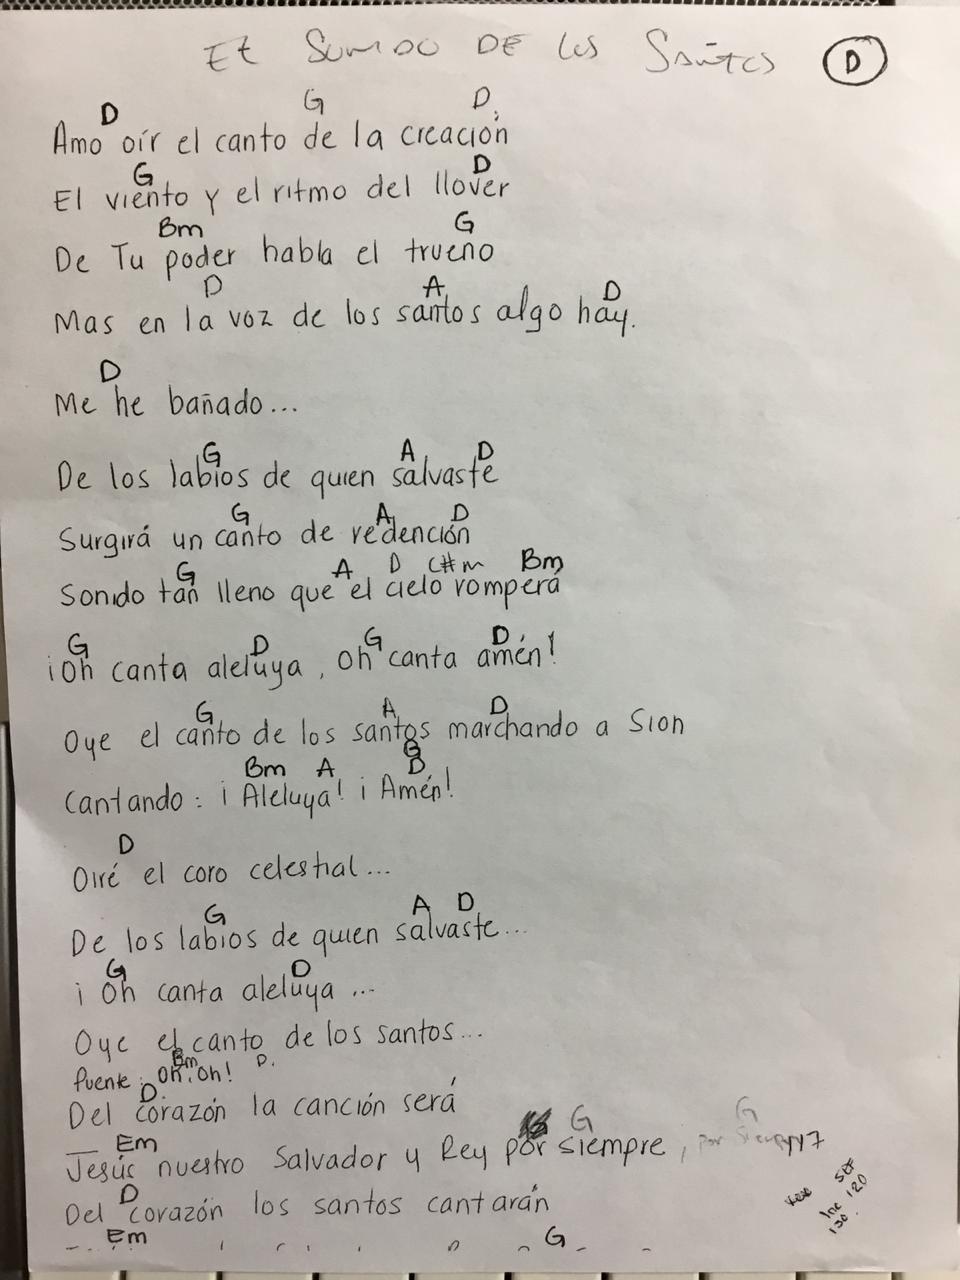 El Sonido DE los Santos D
D G D
Amo oír el canto de la creación
G D
El viento y el ritmo del llover
Bm G
De Tu poder habla el trueno
D A D
Mas en la voz de los santos algo hay.
D
Me he bañado...
G A D
De los labios de quien salvaste
G A D
Surgirá un canto de redención
G A D C#m Bm
Sonido tan lleno que el cielo romperá
G D G D
¡Oh canta aleluya, oh canta amén!
G A D
Oye el canto de los santos marchando a Sion
Bm A G D
Cantando: ¡Aleluya! ¡Amén!
D
Oiré el coro celestial...
G A D
De los labios de quien salvaste...
G D
¡Oh canta aleluya...
Oye el canto de los santos...
Bm D.
Puente: oh, oh!
D
Del corazón la canción será
G G
Em
Jesús nuestro Salvador y Rey por siempre, por siempre
D
Del corazón los santos cantarán
Em G
120
130.